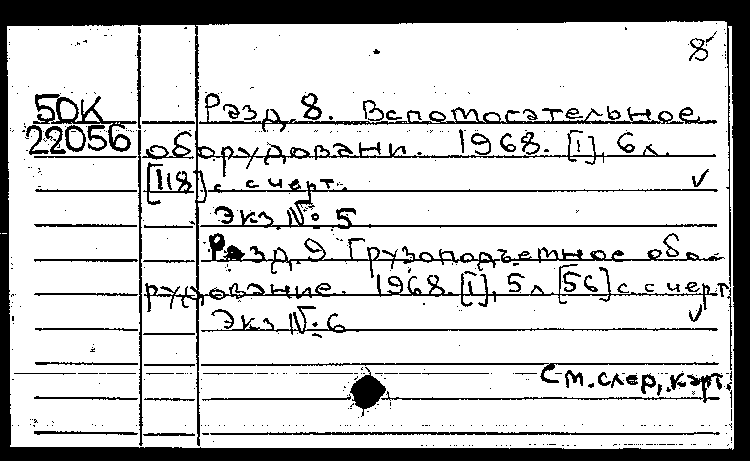 8
50К Разд. 8. Вспомогательное
22056 оборудовани. 1968. [1], 6 л.
[118] с. с черт. ✓
Экз. № 5
Разд. 9 Грузоподъемное обо-
рудование. 1968. [1], 5 л [56] с с черт.
Экз. № 6 ✓
См. след, карт.